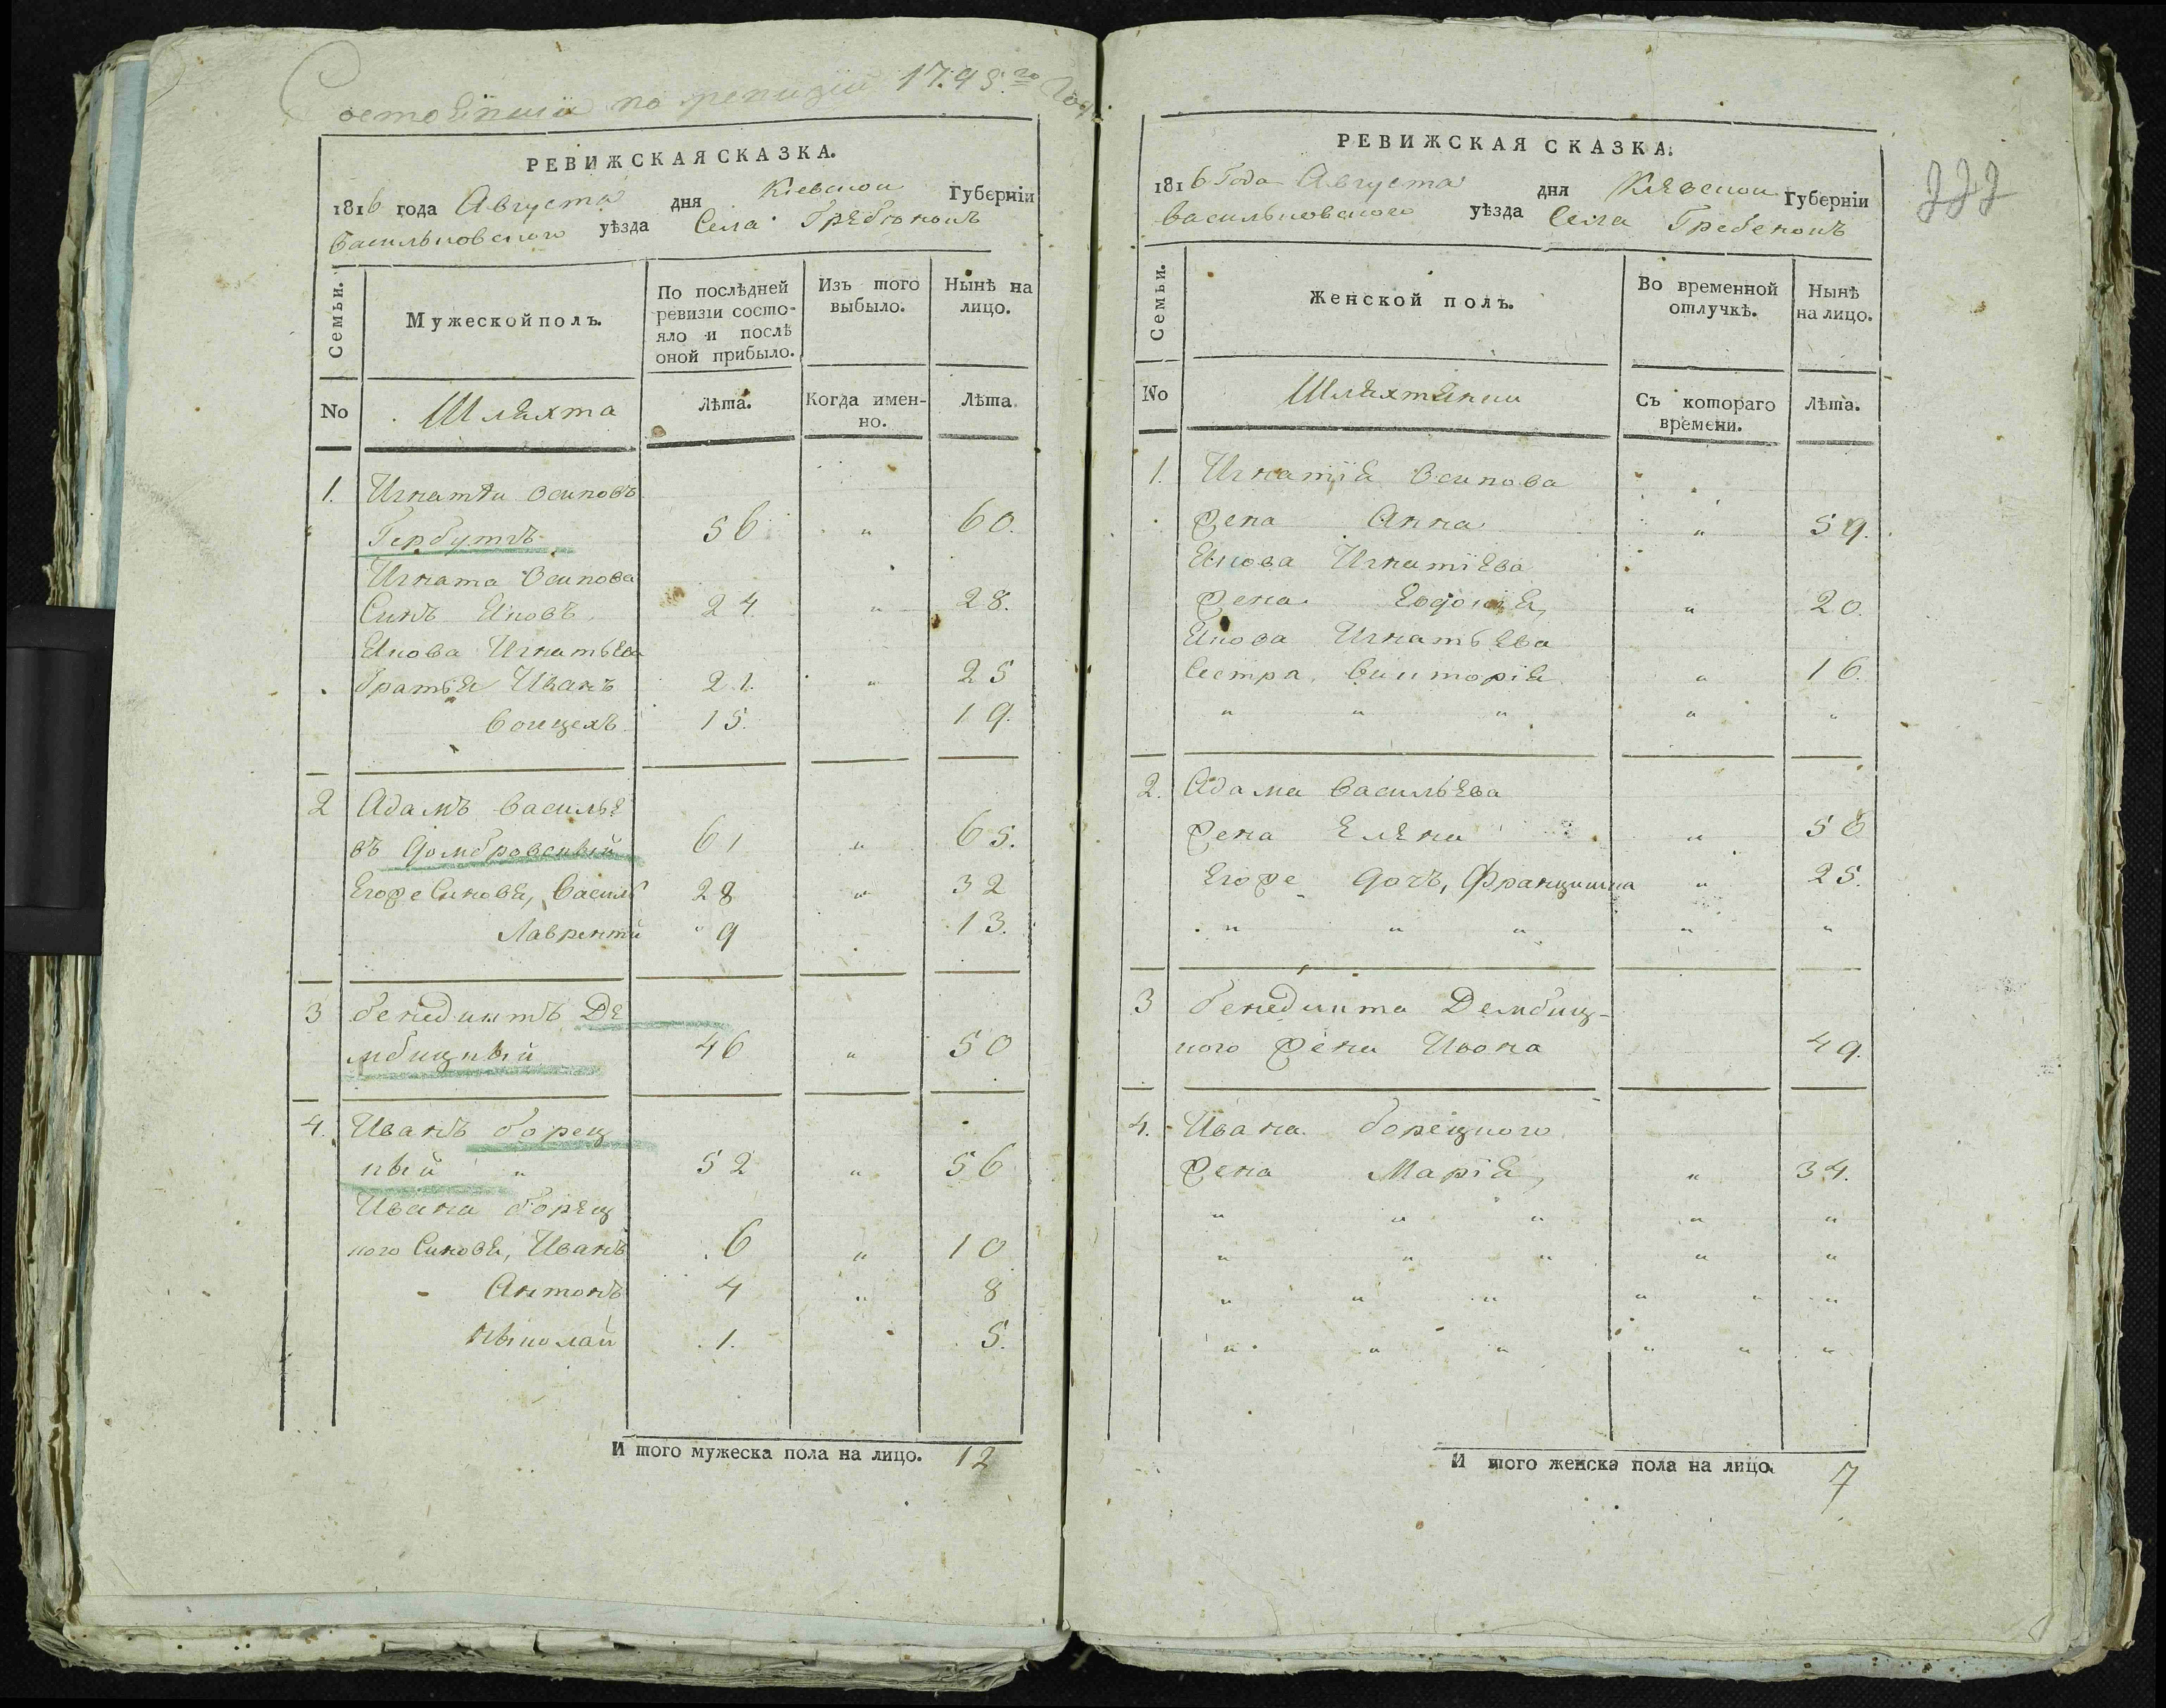 Состоящии по ревизии 1795го Года
РЕВИЖСКАЯ СКАЗКА.
1816 года Августа дня Киевской Губернїи
Васильковского уѣзда Села Гребюнокъ
Семьи.
Мужеской полъ.
По послѣдней ревизїи состояло и послѣ оной прибыло.
Изъ того выбыло.
Нынѣ на лицо.
No
Шляхта
Лѣта.
Когда именно.
Лѣта.
1. Игнатѣи Осиповъ
Гербутъ 56 " 60.
Игната Осипова
Синъ Яковъ 24 " 28.
Якова Игнатьева
братья Иванъ 21. " 25
Войцехъ 15. 19.
2 Адамъ Василье
въ Домбровскый 61 " 65.
Егоже Синовя, Василь 28 " 32
Лаврентій 9 13.
3 бенедиктъ Де
мбицкый 46 " 50
4. Иванъ борец
кый " 52 " 56
Ивана борец
кого Синовя, Иванъ 6 " 10
Антонъ 4 " 8
Ныколай 1. 5.
И того мужеска пола на лицо. 12
РЕВИЖСКАЯ СКАЗКА.
1816 Года Августа дня Киевской Губернїи
Васильковского уѣзда Села Гребенокъ
Семьи.
Женской полъ.
Во временной отлучкѣ.
Нынѣ на лицо.
No
Шляхтянки
Съ котораго времени.
Лѣта.
1. Игнатія Осипова
Жена Анна " 59.
Якова Игнатіева
Жена Евдокія, " 20.
Якова Игнатьева
Сестра, Викторія " 16.
" " " " "
2. Адама Васильева
Жена Елена " 58
Егоже дочъ, Францишка " 25.
" " " " "
3 бенедикта Дембиц-
кого Жена Ивона 49.
4. Ивана борецкого
Жена Марія, " 34.
" " " " "
" " " " "
" " " " " "
" " " " " "
И того женска пола на лицо. 7